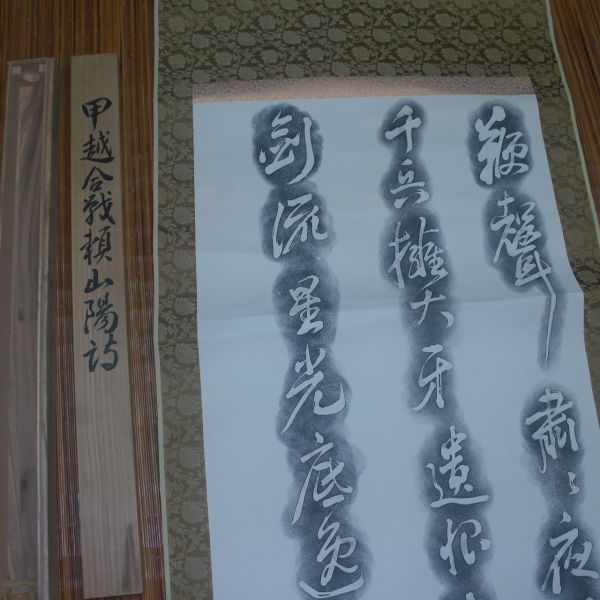 鞭聲肅〻夜
千兵擁大牙遺恨
剣流星光底逸
甲越合戦頼山陽詩